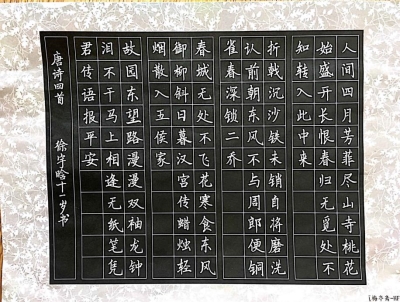 人间四月芳菲尽山寺桃花
始盛开长恨春归无觅处不
知转入此中来
折戟沉沙铁未销自将磨洗
认前朝东风不与周郎便铜
雀春深锁二乔
春城无处不飞花寒食东风
御柳斜日暮汉宫传蜡烛轻
烟散入五侯家
故园东望路漫漫双袖龙钟
泪不干马上相逢无纸笔凭
君传语报平安
唐诗四首 徐宇晗十一岁书